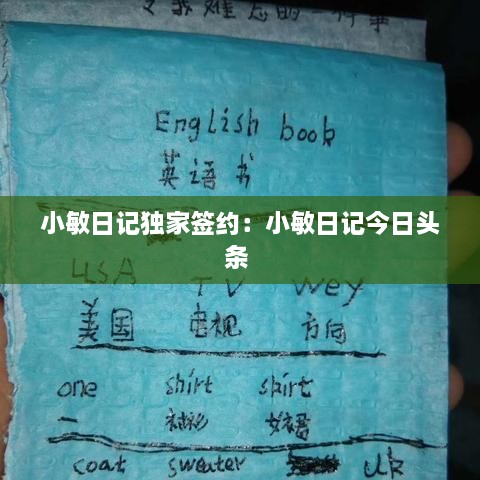 令我难忘的一件事
English book
英语书
小敏日记独家签约：小敏日记今日头
条
USA TV wey
美国 电视 方向
one shirt skirt
一 衬衫
coat sweater uk